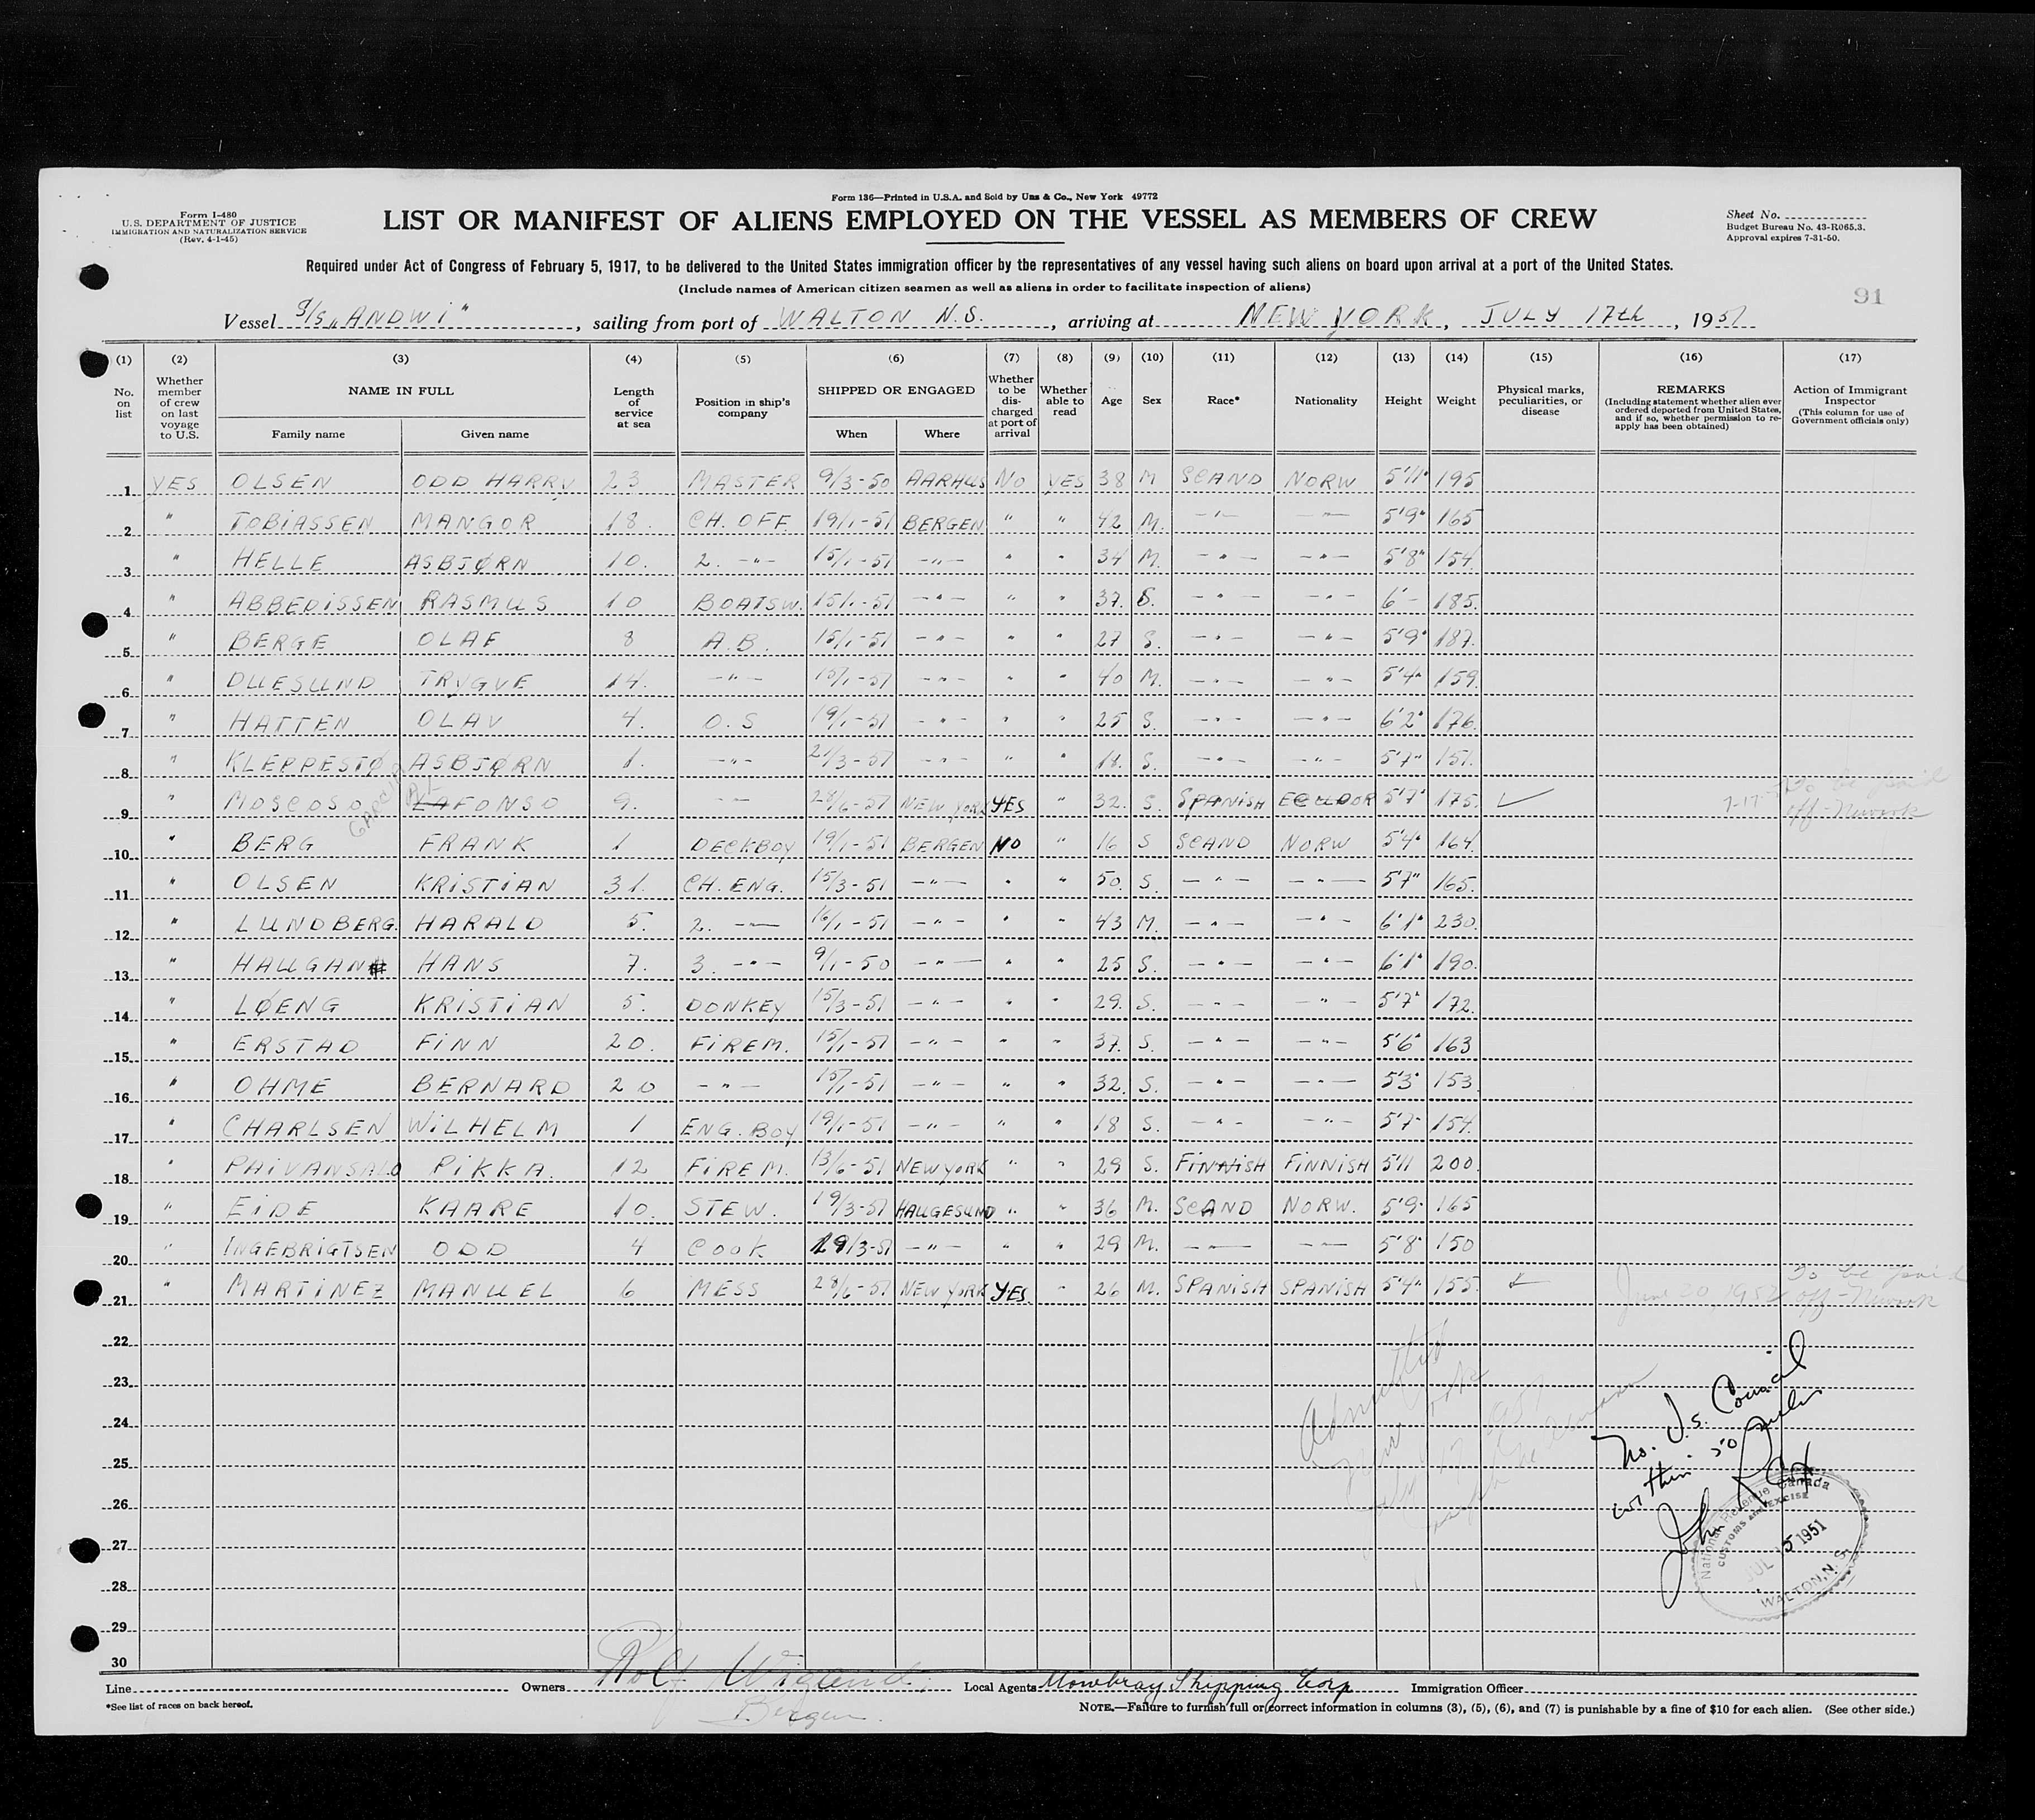 Form 136—Printed in U.S.A. and Sold by Unz & Co., New York 49772
Form I-480
U.S. DEPARTMENT OF JUSTICE
IMMIGRATION AND NATURALIZATION SERVICE
(Rev. 4-1-45)
LIST OR MANIFEST OF ALIENS EMPLOYED ON THE VESSEL AS MEMBERS OF CREW
Sheet No.
Budget Bureau No. 43-R065.3.
Approval expires 7-31-50.
Required under Act of Congress of February 5, 1917, to be delivered to the United States immigration officer by the representatives of any vessel having such aliens on board upon arrival at a port of the United States.
(Include names of American citizen seamen as well as aliens in order to facilitate inspection of aliens)
91
Vessel S/S "ANDWI", sailing from port of WALTON N.S., arriving at NEW YORK, JULY 17th, 1951
(1) (2) (3) (4) (5) (6) (7) (8) (9) (10) (11) (12) (13) (14) (15) (16) (17)
No. on list
Whether member of crew on last voyage to U.S.
NAME IN FULL
Family name Given name
Length of service at sea
Position in ship's company
SHIPPED OR ENGAGED
When Where
Whether to be discharged at port of arrival
Whether able to read
Age
Sex
Race*
Nationality
Height
Weight
Physical marks, peculiarities, or disease
REMARKS
(Including statement whether alien ever ordered deported from United States, and if so, whether permission to re-apply has been obtained)
Action of Immigrant Inspector
(This column for use of Government officials only)
1 YES OLSEN ODD HARRY 23 MASTER 9/3-50 AARHUS NO YES 38 M SCAND NORW 5'11" 195
2 " TOBIASSEN MANGOR 18. CH. OFF. 19/1-51 BERGEN " " 42 M. -"- -"- 5'9" 165
3 " HELLE ASBJØRN 10. 2. -"- 15/1-51 -"- " " 34 M. -"- -"- 5'8" 154.
4 " ABBEDISSEN RASMUS 10 BOATSW. 15/1-51 -"- " " 37. S. -"- -"- 6'- 185.
5 " BERGE OLAF 8 A.B. 15/1-51 -"- " " 27 S. -"- -"- 5'9" 187.
6 " DUESUND TRYGVE 14. -"- 15/1-51 -"- " " 40 M. -"- -"- 5'4" 159.
7 " HATTEN OLAV 4. O.S 19/1-51 -"- " " 25 S. -"- -"- 6'2" 176.
8 " KLEPPESTØ ASBJØRN 1. -"- 21/3-51 -"- " " 18. S. -"- -"- 5'7" 151.
9 " MOSCOSO GARCIA ALFONSO 9. -- 28/6-51 NEW YORK YES " 32. S. SPANISH ECUADOR 5'7" 175. ✓ To be paid off-Newark
10 " BERG FRANK 1 DECKBOY 19/1-51 BERGEN NO " 16 S SCAND NORW 5'4" 164.
11 " OLSEN KRISTIAN 31. CH. ENG. 15/3-51 -"- " " 50. S. -"- -"- 5'7" 165.
12 " LUNDBERG. HARALD 5. 2. -"- 16/1-51 -"- " " 43 M. -"- -"- 6'1" 230.
13 " HAUGAN HANS 7. 3. -"- 9/1-50 -"- " " 25 S. -"- -"- 6'1" 190.
14 " LØENG KRISTIAN 5. DONKEY 15/3-51 -"- " " 29. S. -"- -"- 5'7" 172.
15 " ERSTAD FINN 20. FIREM. 15/1-51 -"- " " 37. S. -"- -"- 5'6" 163
16 " OHME BERNARD 20 -"- 15/1-51 -"- " " 32. S. -"- -"- 5'3" 153.
17 " CHARLSEN WILHELM 1 ENG. BOY. 19/1-51 -"- " " 18 S. -"- -"- 5'7" 154.
18 " PAIVANSALO PIKKA. 12 FIREM. 13/6-51 NEW YORK " " 29 S. FINNISH FINNISH 5'11 200.
19 " EIDE KAARE 10. STEW. 19/3-51 HAUGESUND " " 36 M. SCAND NORW. 5'9" 165
20 " INGEBRIGTSEN ODD 4 COOK 29/3-51 -"- " " 29 M. -"- -"- 5'8" 150
21 " MARTINEZ MANUEL 6 MESS 28/6-51 NEW YORK YES. " 26 M. SPANISH SPANISH 5'4" 155. ✓ June 20, 1952 To be paid off-Newark
22
23
24
25
26
27
28
29
30
Admitted
New York
July 17 1951
No. U.S. Consul
within 50 miles
National Revenue Canada
CUSTOMS and EXCISE
JUL 15 1951
WALTON, N.S.
Line Owners Rolf Wigand. Local Agents Mowbray Shipping Corp Immigration Officer
Bergen.
*See list of races on back hereof.
NOTE.—Failure to furnish full or correct information in columns (3), (5), (6), and (7) is punishable by a fine of $10 for each alien. (See other side.)